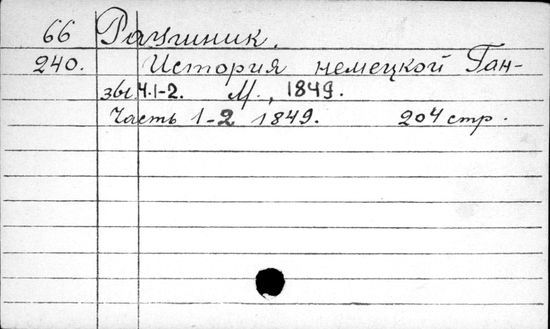 66 Раушник.
240. История немецкой Ган-
зы Ч.1-2. М., 1849.
Часть 1-2 1849. 204 стр.